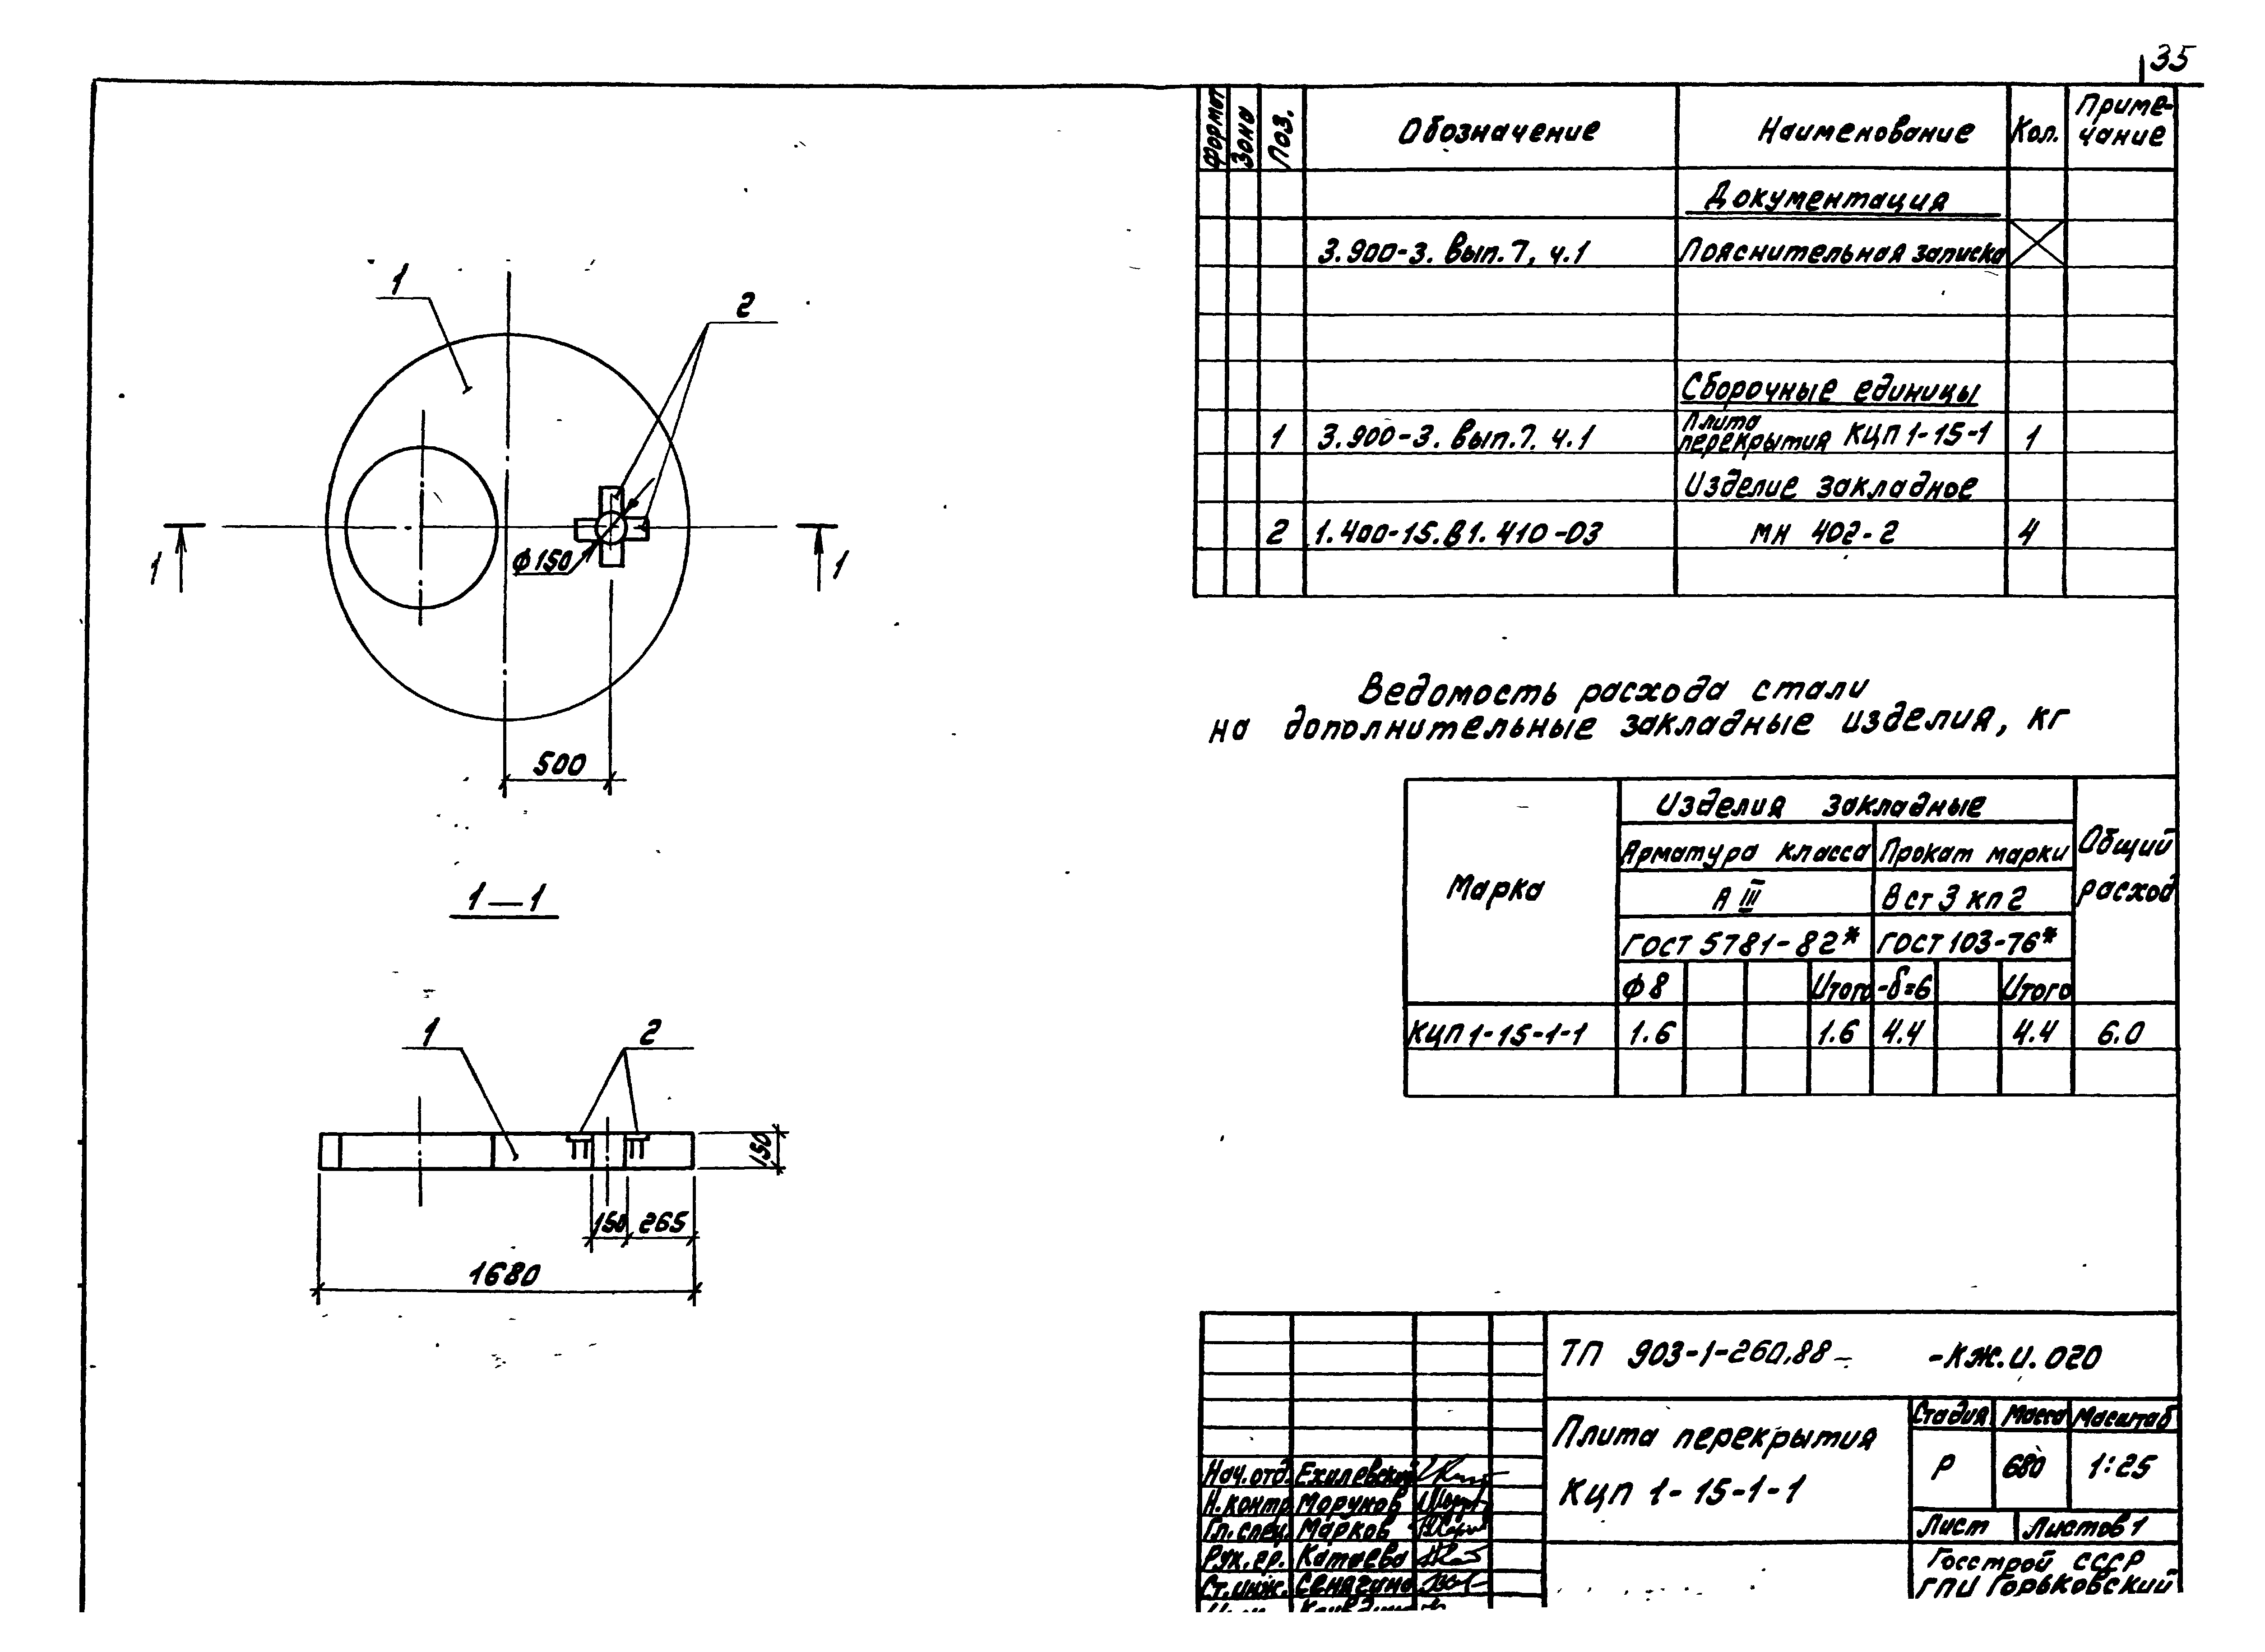 35
Формат Зона Поз. Обозначение Наименование Кол. Приме-
чание
Документация
3.900-3. Вып.7, ч.1 Пояснительная записка
Сборочные единицы
1 3.900-3. Вып.7. ч.1 Плита
перекрытия КЦП 1-15-1 1
Изделие закладное
2 1.400-15.В1.410-03 МН 402-2 4
1
2
Ф150
1 1
500
1—1
1 2
150
150 265
1680
Ведомость расхода стали
на дополнительные закладные изделия, кг
Марка
Изделия закладные
Общий
расход
Арматура класса Прокат марки
А III Вст3кп2
ГОСТ 5781-82* ГОСТ 103-76*
Ф8 Итого -δ=6 Итого
КЦП1-15-1-1 1.6 1.6 4.4 4.4 6.0
ТП 903-1-260.88 -КЖ.И.020
Плита перекрытия
КЦП 1-15-1-1
Стадия Масса Масштаб
Р 680 1:25
Лист Листов 1
Госстрой СССР
ГПИ Горьковский
Нач.отд. Ехилевский
Н.контр. Морунов
Гл.спец. Марков
Рук.гр. Катаева
Ст.инж. Сенягина